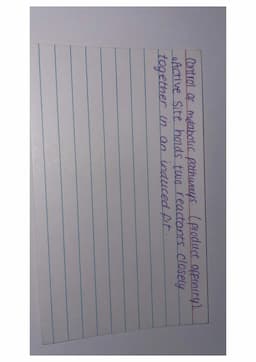 Control of metabolic pathways (product affinity)
• Active Site holds two reactants closely
together in an induced fit.